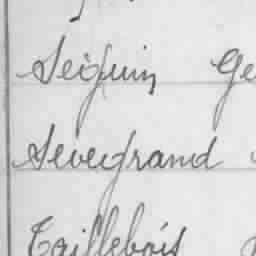 Seguin Ge
Sevegrand
Taillebois